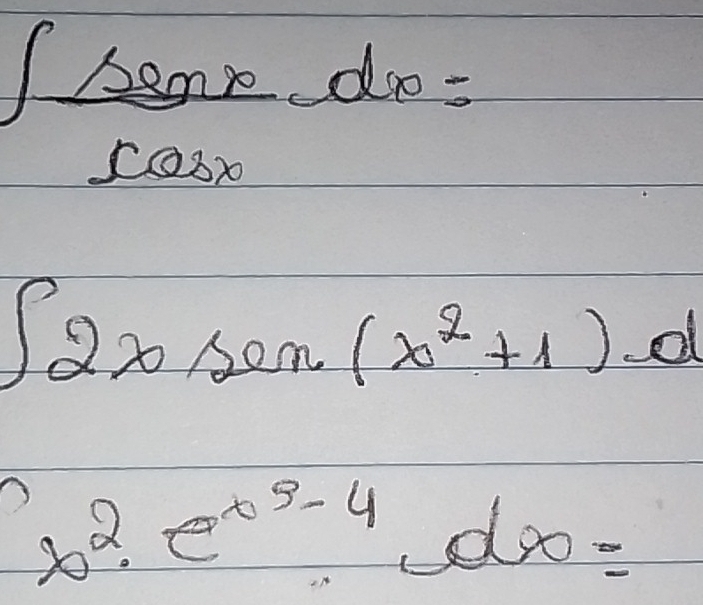 ∫ senx dx =
cosx
∫ 2x sen (x² + 1) d
x² · e^x³ - 4 dx =